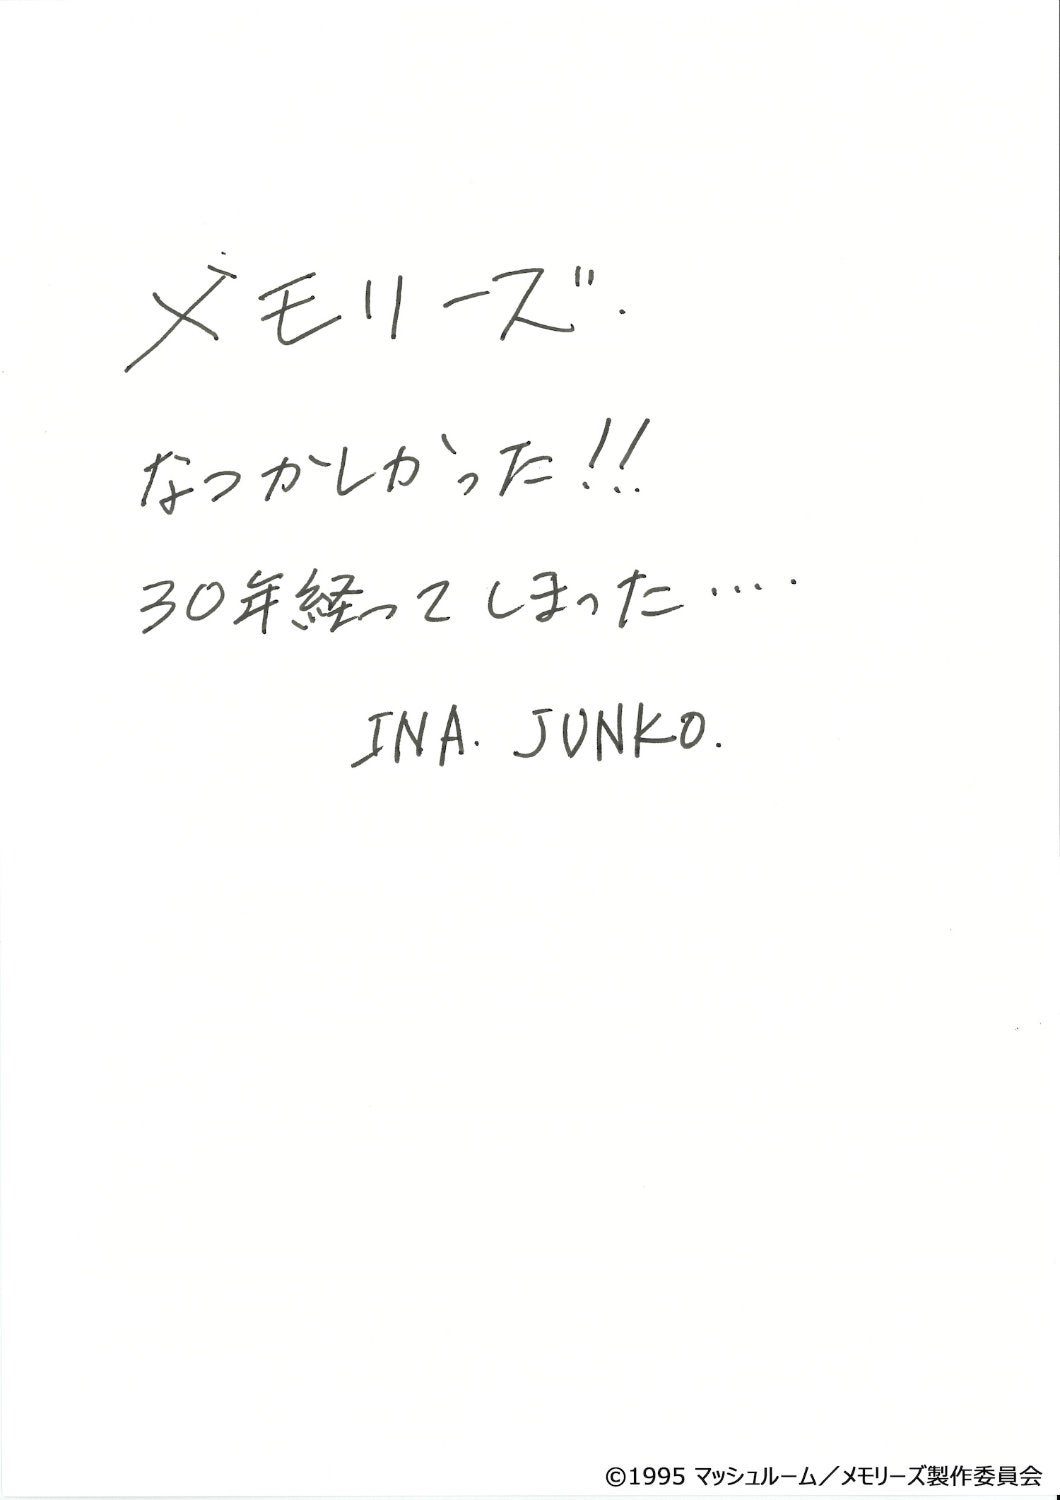 メモリーズ.
なつかしかった!!
30年経ってしまった.....
INA. JUNKO.
©1995 マッシュルーム／メモリーズ製作委員会